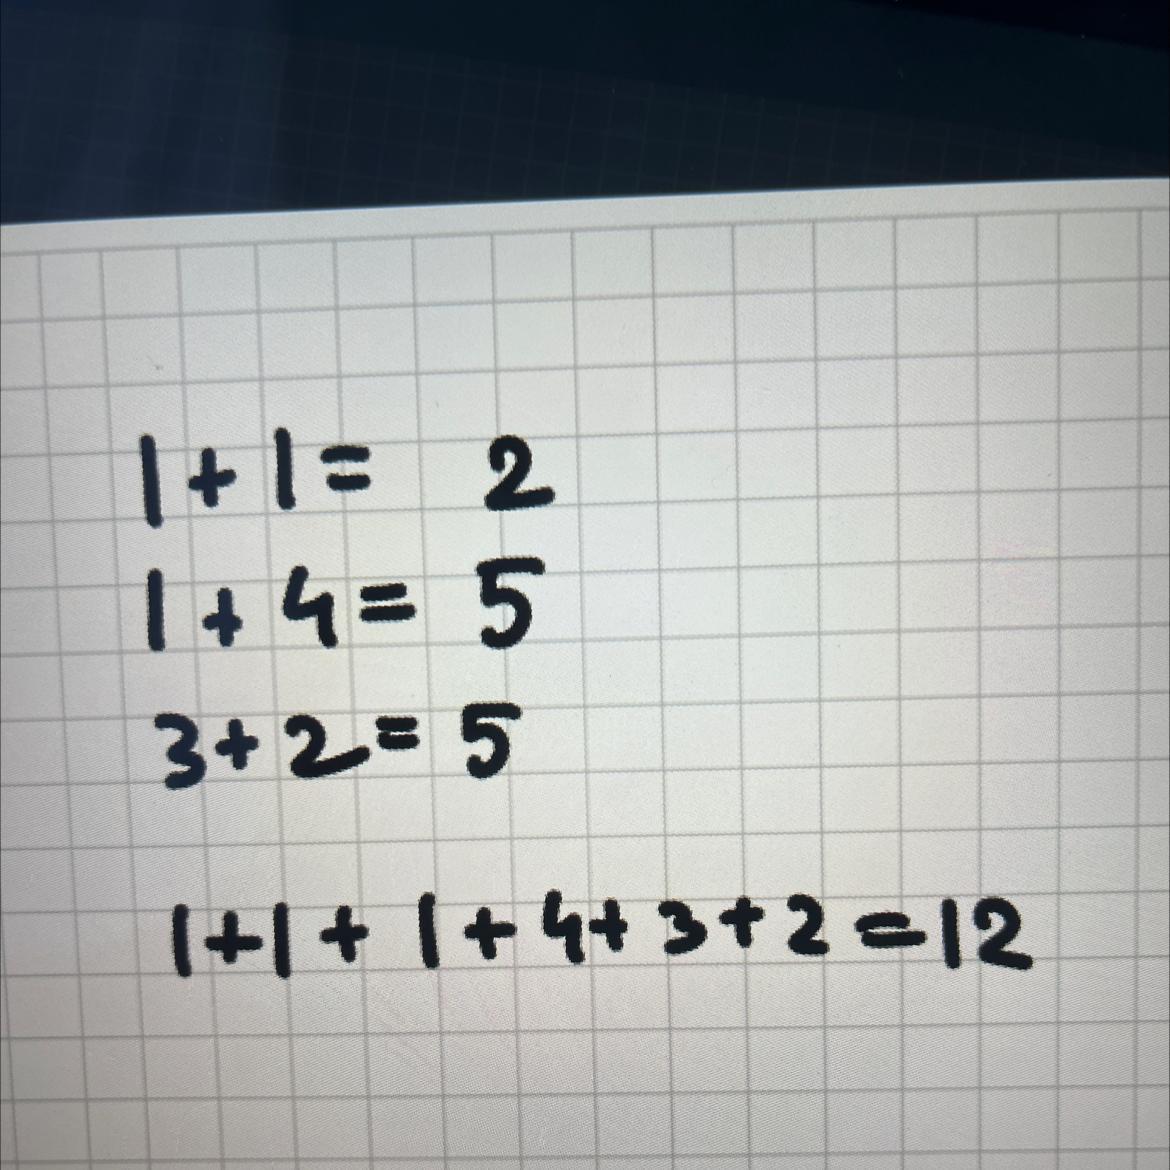 1 + 1 = 2
1 + 4 = 5
3 + 2 = 5
1 + 1 + 1 + 4 + 3 + 2 = 12